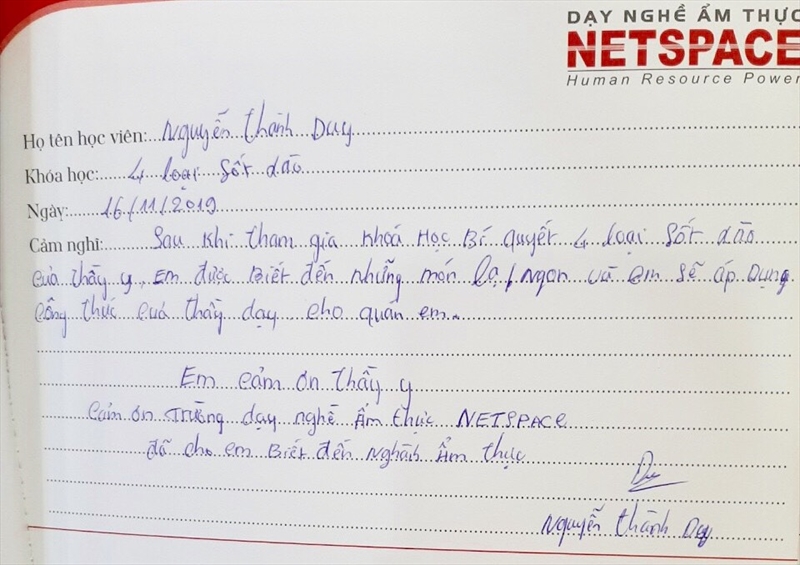 DẠY NGHỀ ẨM THỰC
NETSPACE
Human Resource Power
Họ tên học viên: Nguyễn Thành Duy
Khóa học: 4 loại sốt dão
Ngày: 16/11/2019
Cảm nghĩ: Sau khi tham gia khoá học Bí quyết 4 loại sốt dão
của thầy y, Em được Biết đến những món lạ/Ngon và em sẽ áp Dụng
công thức của thầy dạy cho quán em.
Em cảm ơn thầy y
cảm ơn trường dạy nghề Ẩm thực NETSPACE
đã cho em Biết đến Nghành Ẩm thực
Duy
Nguyễn Thành Duy